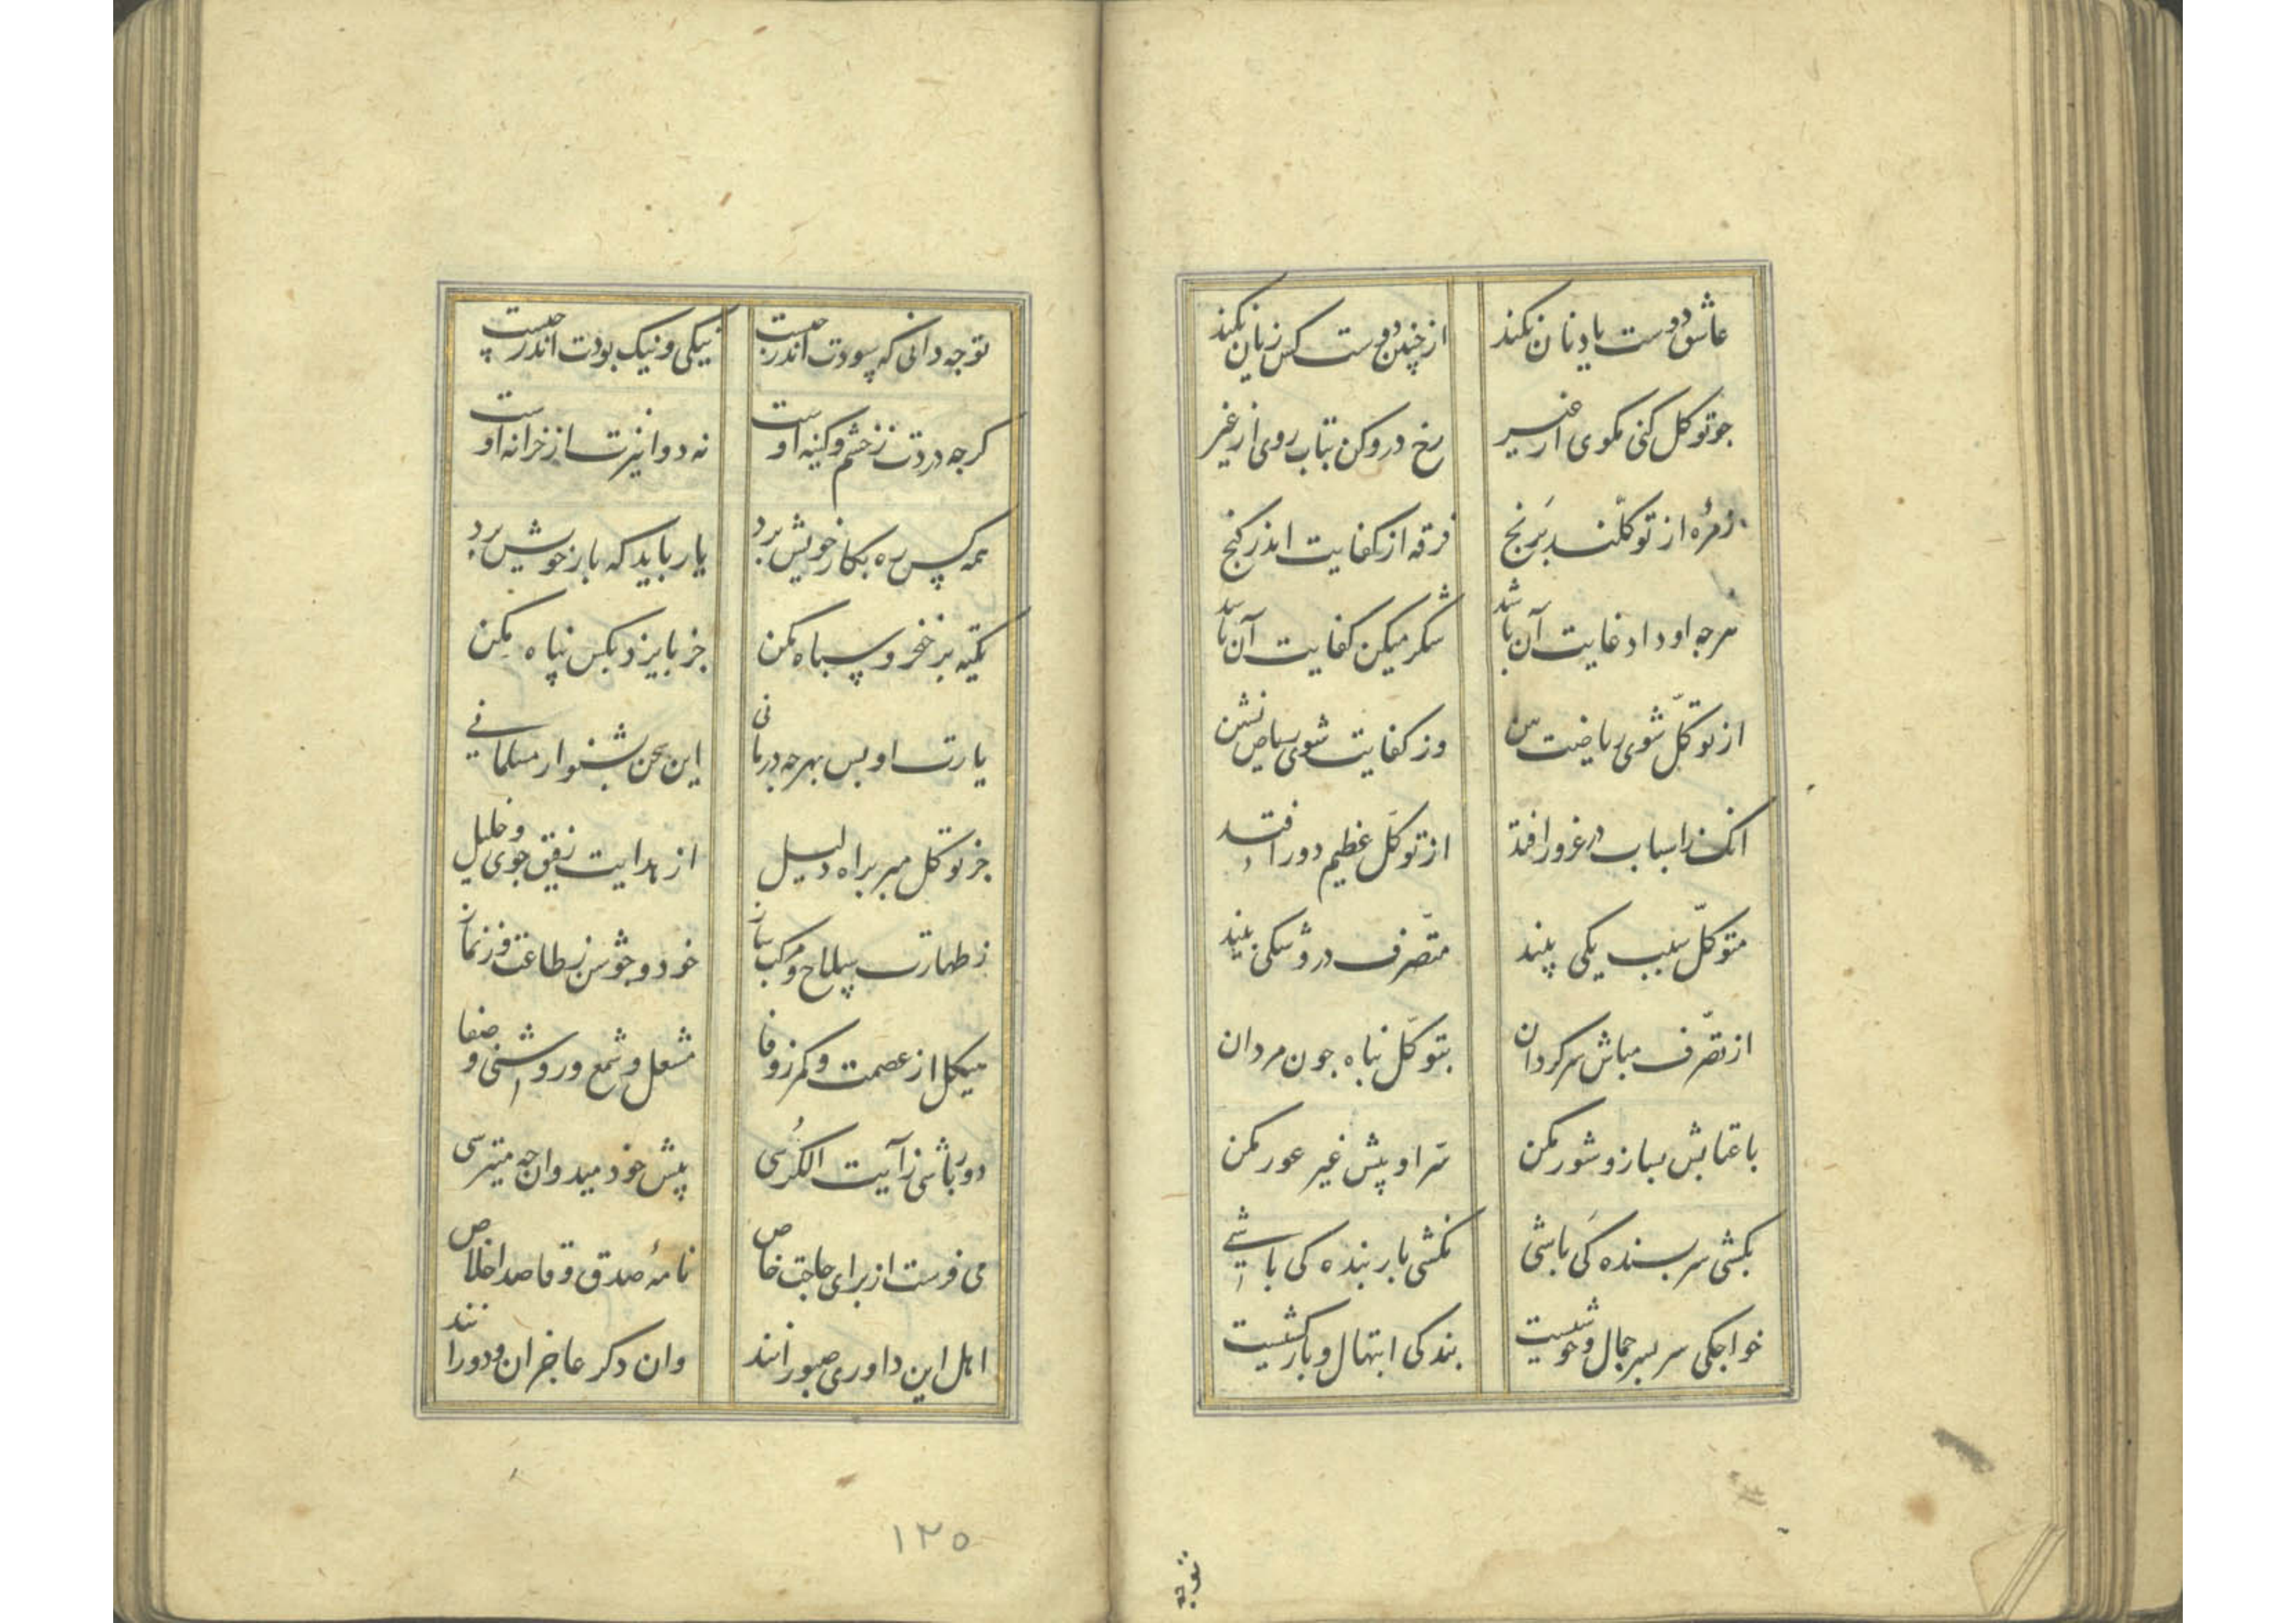 عاشق دوست یاد نان نکند از چنین دوست کس زیان نکند
جو توکل کنی مکوی از غیر رخ درو کن بتاب روی از غیر
زمرهٔ از توکلند برنج فرقه از کفایت اندر کنج
هرجه او داد غایت آن باشد شکر میکن کفایت آن باشد
از توکّل شوی ریاضت بین وز کفایت شوی ریاض نشین
انک ز اسباب در غرور افتد از توکّل عظیم دور افتد
متوکّل سبب یکی بیند متصّرف درو شکی بیند
از تصّرف مباش سرکردان بتوکّل پناه جون مردان
با عتابش بساز و شور مکن سر او پیش غیر عور مکن
بکشی سر بسنده کی باشی نکشی بار بنده کی باشی
خواجکی سر بسر جمال و خوشیست بندکی ابتهال و بارکشیست
توجه
تو جه دانی که سودت اندر جیست نیکی و نیک بودت اندر جیست
کرجه دردت ز خشم و کینه اوست نه دوا نیزت از خزانه اوست
همه کس ره بکار خویش برد یار باید که بار خویش برد
تکیه بر فخر و سپاه مکن جز بایزد بکس پناه مکن
یارت او بس بهرجه درمانی این سخن بشنو ار مسلمانی
جز توکل مبر براه دلیل از هدایت رفیق جوی و خلیل
ز طهارت سلاح و مرکب ساز خود و جوشن ز طاعت و ز نماز
هیکل از عصمت و کمر ز وفا مشعل و شمع و روشنی و صفا
دور باشی ز آیت الکرسی پیش خود میدوان جه میترسی
می فرست از برای حاجت خاص نامهٔ صدق و قاصد اخلاص
اهل این داوری صبورانند وان دکر عاجزان و دورانند
۱۲۵